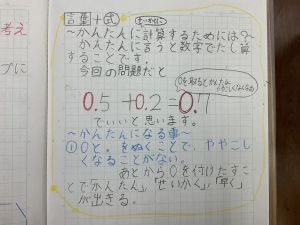 考え
プに
言葉+式
せいかくに
〜かんたんに計算するためには?〜
かんたんに言うと数字でたし算
することです。
今回の問題だと
0を取るとかんたん
0.5+0.2=0.7
でいいと思います。
〜かんたんになる事〜
①0と.をぬくことで、ややこし
くなることがない。
あとから0を付けたすこ
とで「かんたん」「せいかく」「早く」
が出きる。